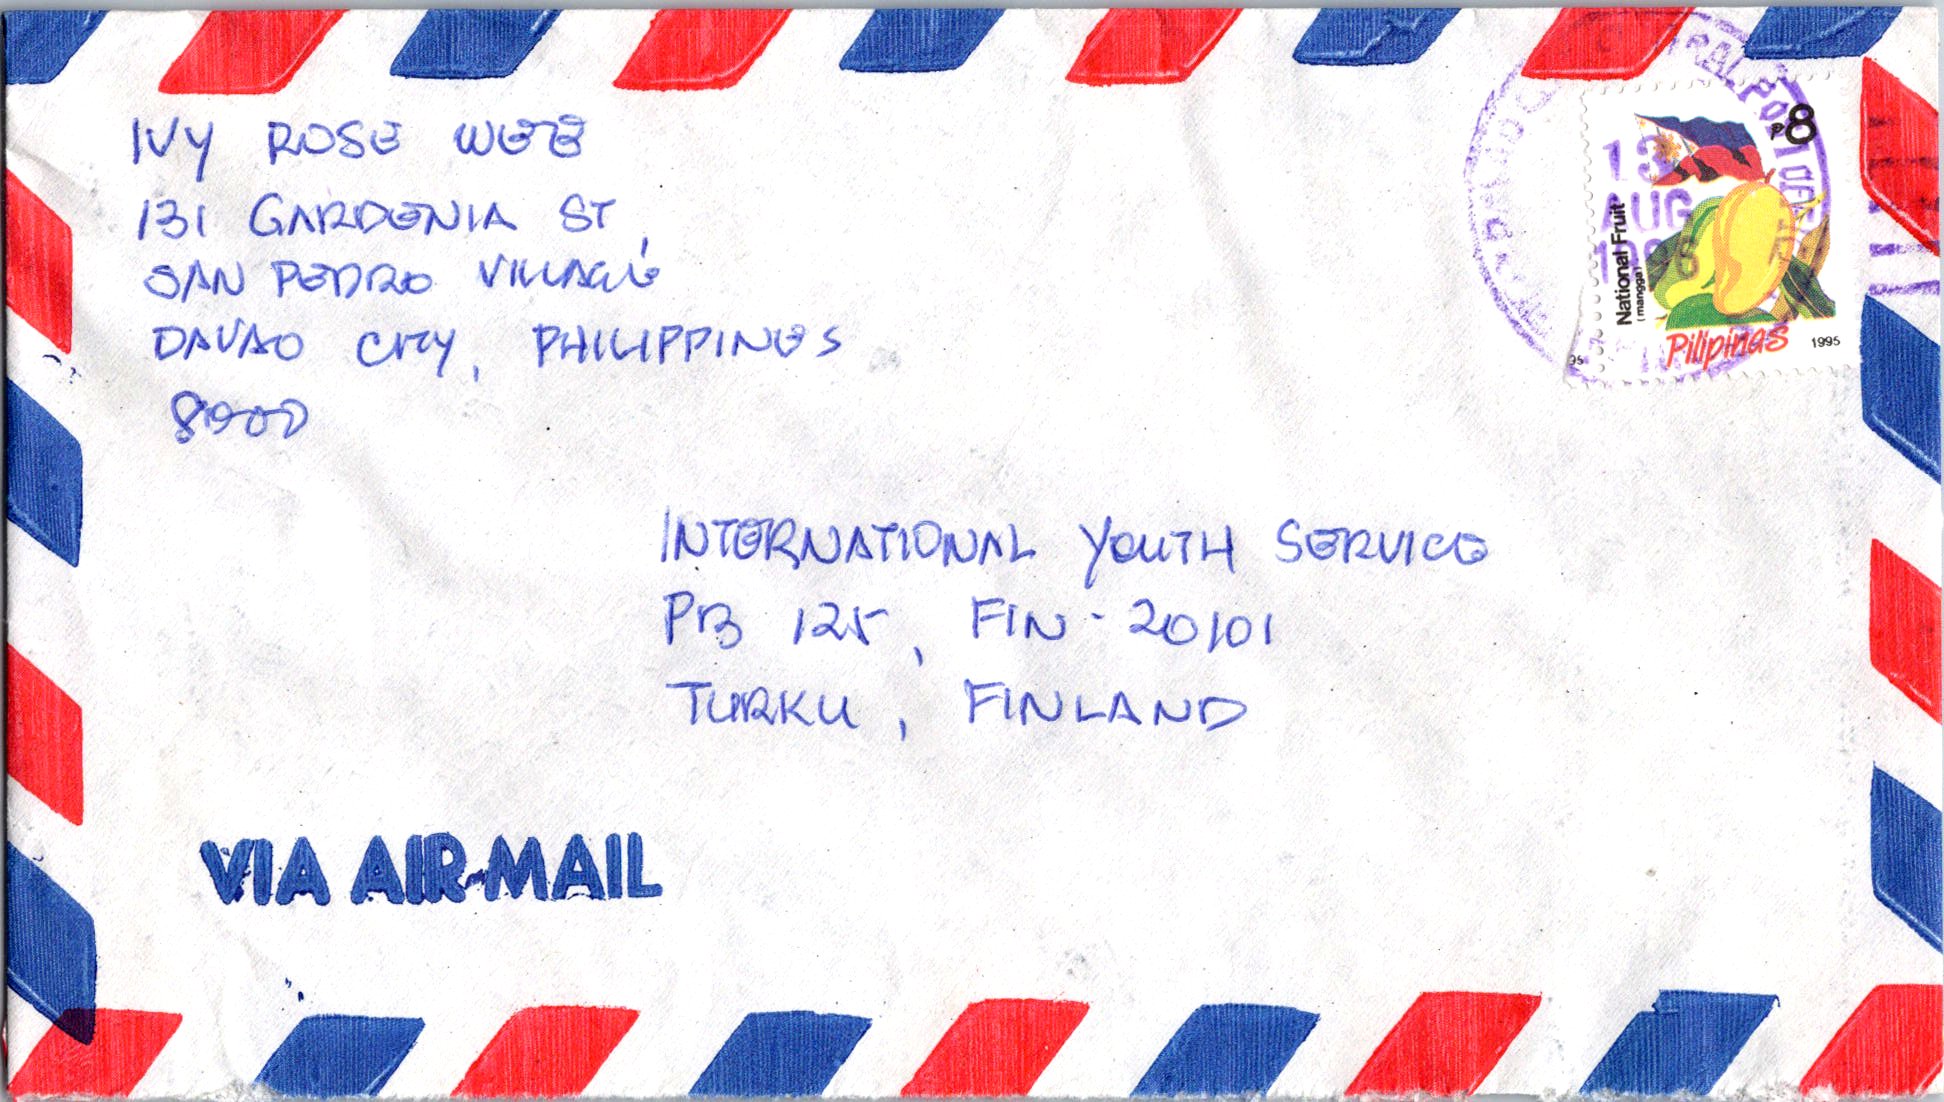 IVY ROSE WEE
131 GARDENIA ST,
SAN PEDRO VILLAGE
DAVAO CITY, PHILIPPINES
8000
P8
National Fruit
(mangga)
Pilipinas 1995
95
13
AUG
INTERNATIONAL YOUTH SERVICE
PB 125, FIN - 20101
TURKU, FINLAND
VIA AIR-MAIL